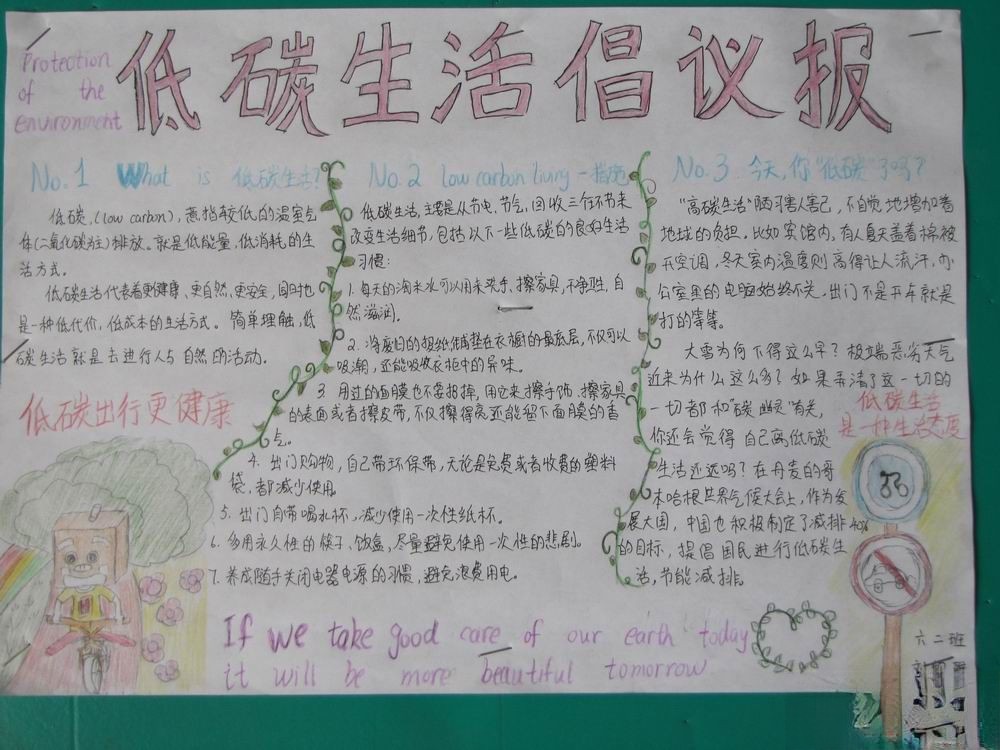 Protection
of the
environment
低碳生活倡议报
No.1 What is 低碳生活?
低碳,(low carbon),意指较低的温室气
体(二氧化碳为主)排放。就是低能量,低消耗的生
活方式。
低碳生活代表着更健康、更自然、更安全,同时也
是一种低代价,低成本的生活方式。简单理解,低
碳生活就是去进行人与自然的活动。
低碳出行更健康
No.2 low carbon living - 指施
低碳生活,主要是从节电、节气、回收三个环节来
改变生活细节,包括以下一些低碳的良好生活
习惯:
1. 每天的淘米水可以用来洗手、擦家具,干净卫生,自
然滋润。
2. 将废旧的报纸铺垫在衣橱的最底层,不仅可以
吸潮,还能吸收衣柜中的异味。
3. 用过的面膜也不要扔掉,用它来擦手饰、擦家具
的表面或者擦皮带,不仅擦得亮还能留下面膜的香
气。
4. 出门购物,自己带环保带,无论是免费或者收费的塑料
袋,都减少使用。
5. 出门自带喝水杯,减少使用一次性纸杯。
6. 多用永久性的筷子、饭盒,尽量避免使用一次性的悲剧。
7. 养成随手关闭电器电源的习惯,避免浪费用电。
No.3 今天,你“低碳”了吗?
“高碳生活”陋习害人害己,不自觉地增加着
地球的负担。比如宾馆内,有人夏天盖着棉被
开空调,冬天室内温度则高得让人流汗,办
公室里的电脑始终不关,出门不是开车就是
打的等等。
大雪为何下得这么早?极端恶劣天气
近来为什么这么多?如果弄清了这一切的
一切都和“碳幽灵”有关,
你还会觉得自己离低碳
生活还远吗?在丹麦的哥
本哈根世界气候大会上,作为发
展大国,中国也积极制定了减排40%
的目标,提倡国民进行低碳生
活,节能减排。
低碳生活
是一种生活态度
If we take good care of our earth today
it will be more beautiful tomorrow
六二班